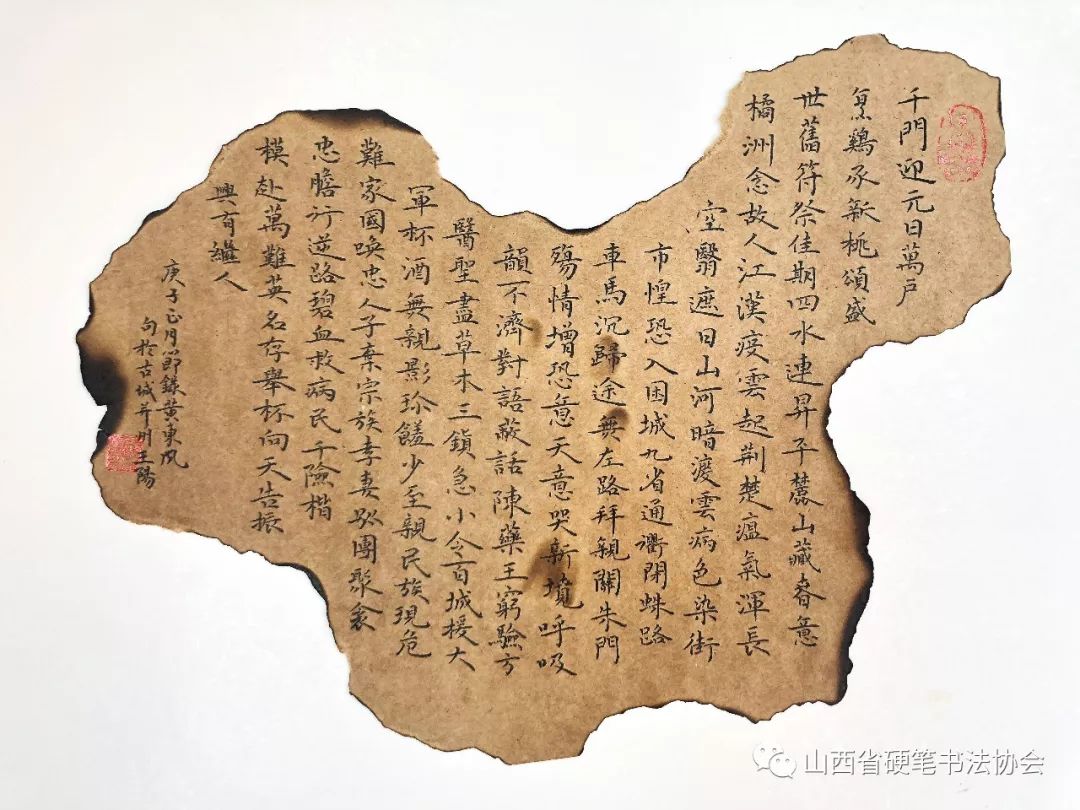 千門迎元日萬戶
鷄承新桃頌盛
世舊符祭佳期四水連昇平麓山藏春意
橘洲念故人江漢疫雲起荆楚瘟氣渾長
空翳遮日山河暗渡雲病色染街
市惶恐入困城九省通衢閉蛛路
車馬沉歸途無左路拜親關朱門
殤情增恐意天意哭新墳呼吸
韻不濟對語蔽話陳藥王窮驗方
醫聖盡草木三鎮急小令百城援大
軍杯酒無親影珍饈少至親民族現危
難家國喚忠人子棄宗族孝妻別團聚衾
忠膽行逆路碧血救病民千險楷
模赴萬難英名存舉杯向天告振
興有繼人
庚子正月節錄黄東風
句於古城并州王陽
山西省硬笔书法协会